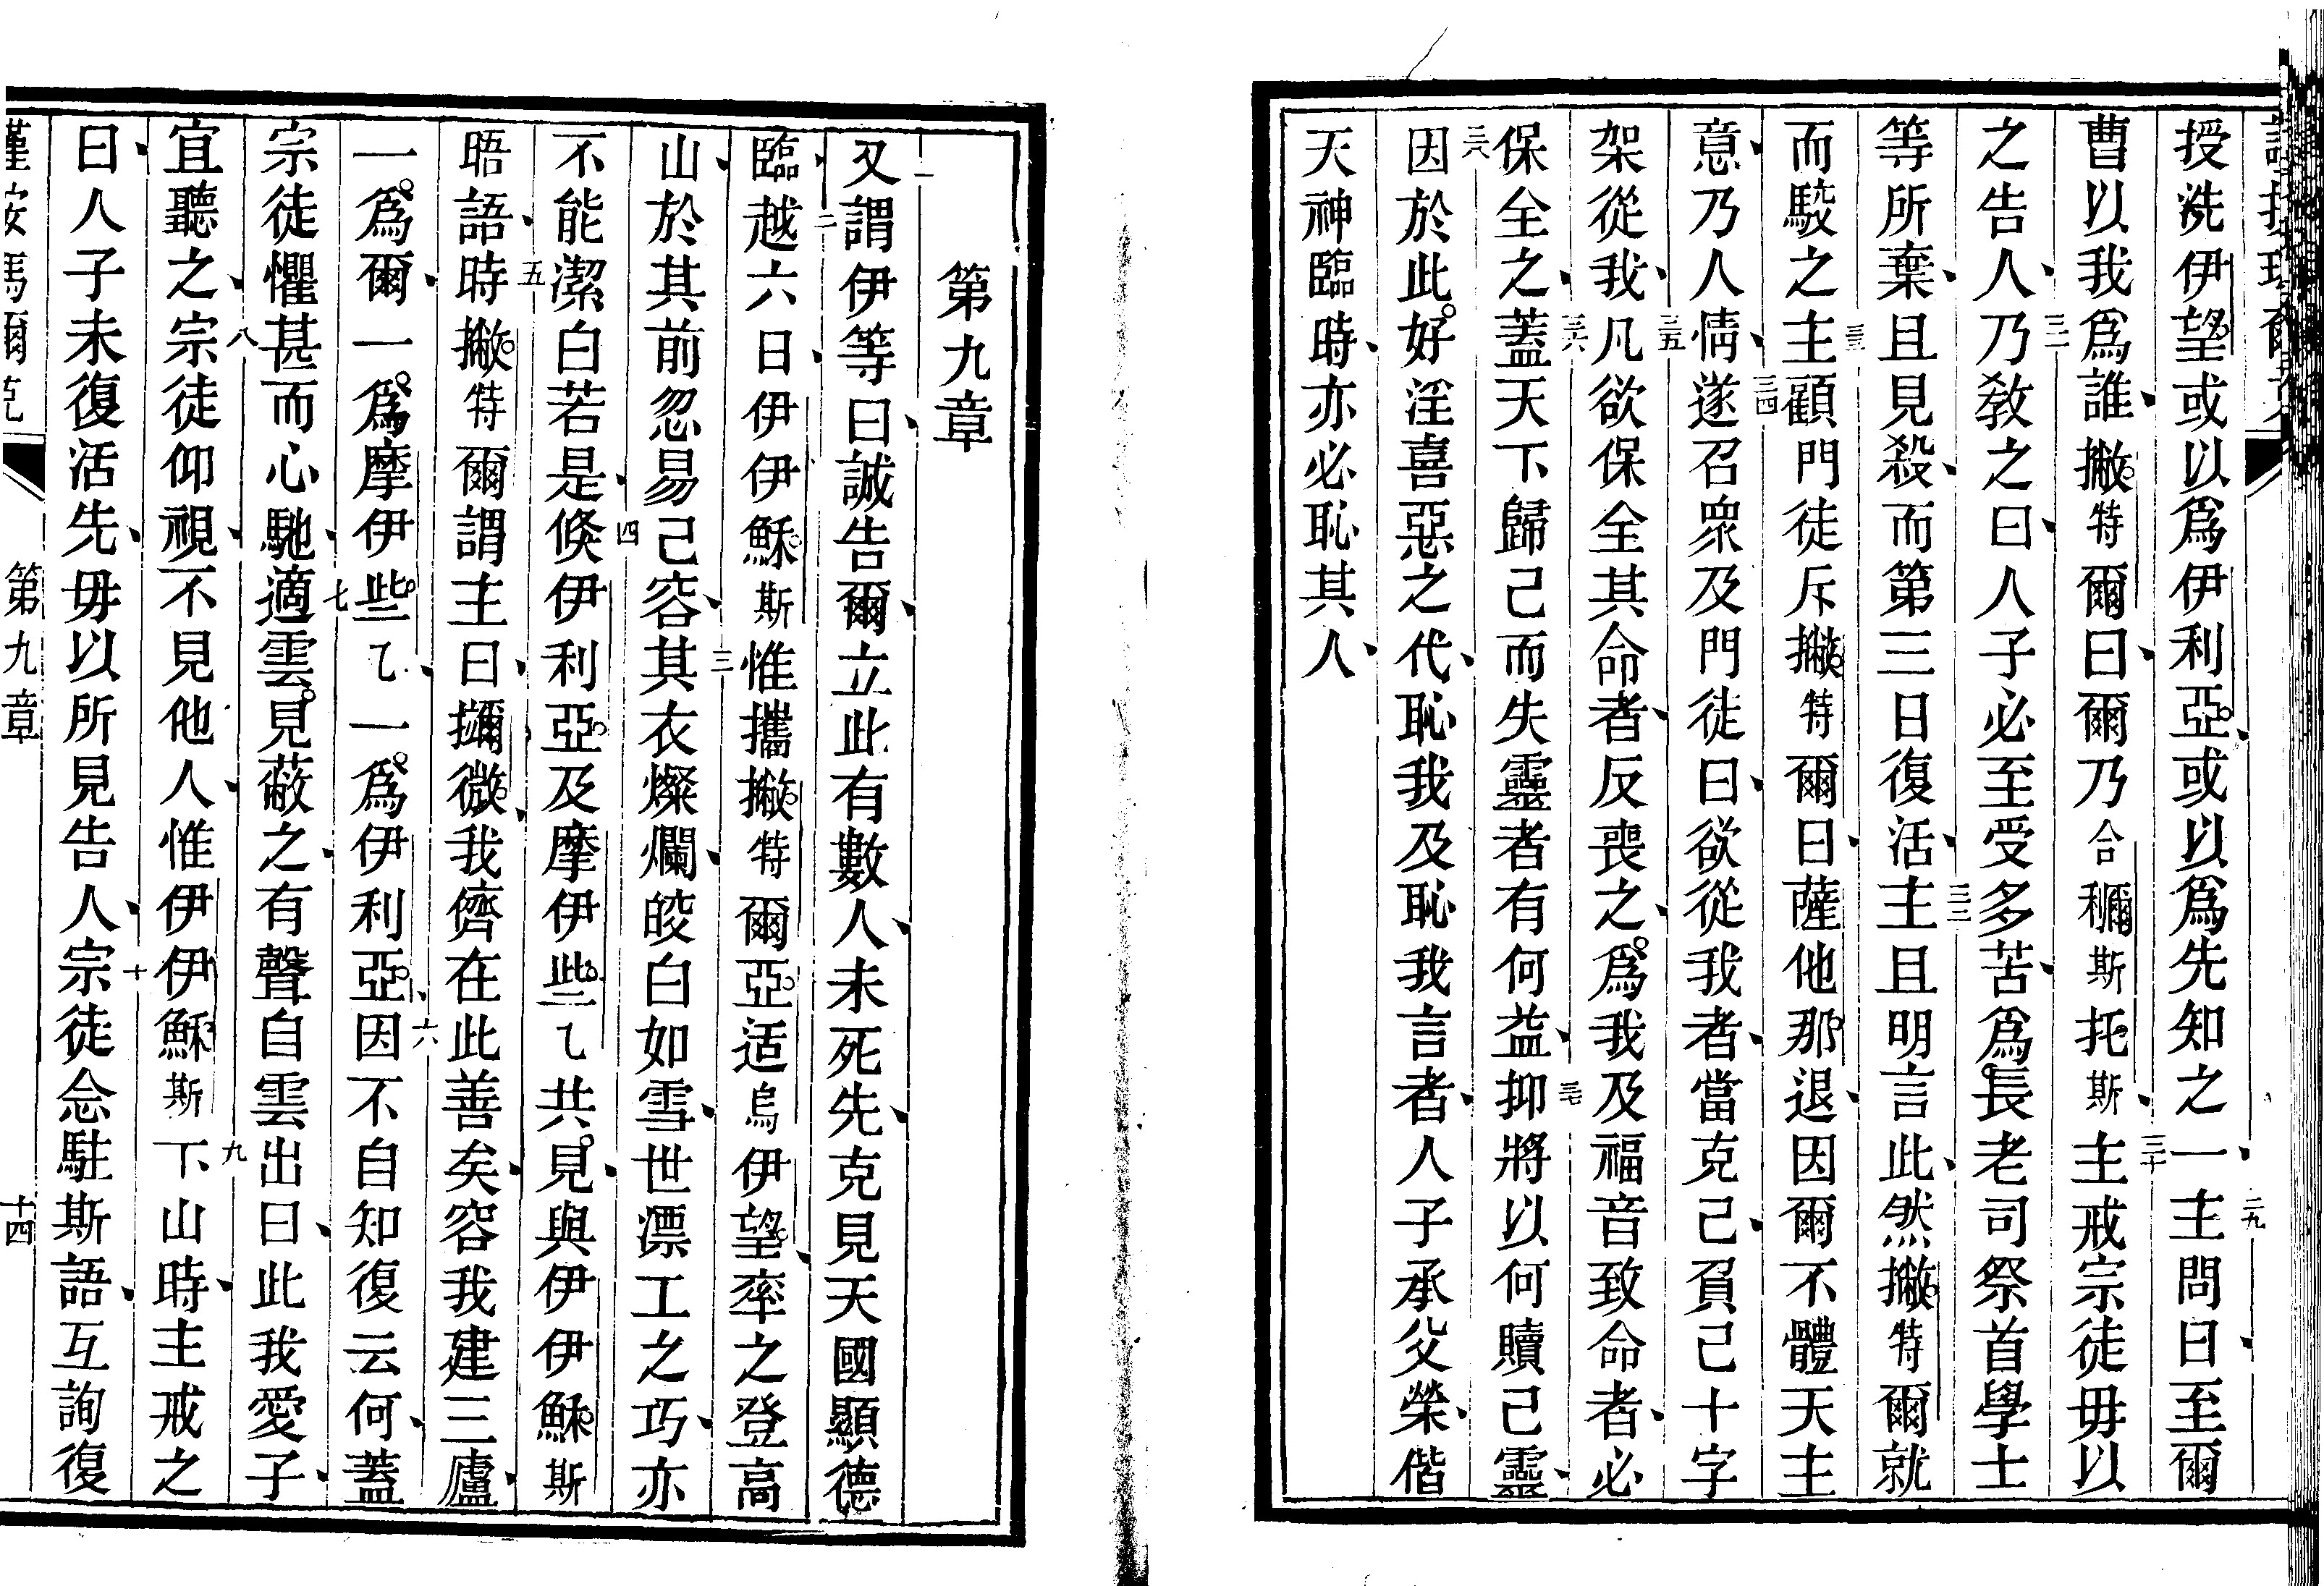 授洗伊望或以爲伊利亞或以爲先知之一二九主問曰至爾
曹以我爲誰撇特爾曰爾乃合利斯托斯三十主戒宗徒毋以
之告人三一乃教之曰人子必至受多苦爲長老司祭首學士
等所棄且見殺而第三日復活三二主且明言此然撇特爾就
而駿之三三主顧門徒斥撇特爾曰薩他那退因爾不體天主
意乃人情三四遂召眾及門徒曰欲從我者當克己負己十字
架從我三五凡欲保全其命者反喪之爲我及福音致命者必
保全之三六蓋天下歸己而失靈者有何益三七抑將以何贖己靈
三八因於此好淫喜惡之代恥我及恥我言者人子承父榮偕
天神臨時亦必恥其人
第九章
一又謂伊等曰誠告爾立此有數人未死先克見天國顯德
臨二越六日伊伊穌斯惟攜撇特爾亞适烏伊望率之登高
山於其前忽易己容三其衣燦爛皎白如雪世漂工之巧亦
不能潔白若是四倏伊利亞及摩伊些乙共見與伊伊穌斯
晤語五時撇特爾謂主曰擟微我儕在此善矣容我建三廬
一爲爾一爲摩伊些乙一爲伊利亞六因不自知復云何蓋
宗徒懼甚而心馳七適雲見蔽之有聲自雲出曰此我愛子
宜聽之八宗徒仰視不見他人惟伊伊穌斯九下山時主戒之
曰人子未復活先毋以所見告人十宗徒念駐斯語互詢復
第九章
十四